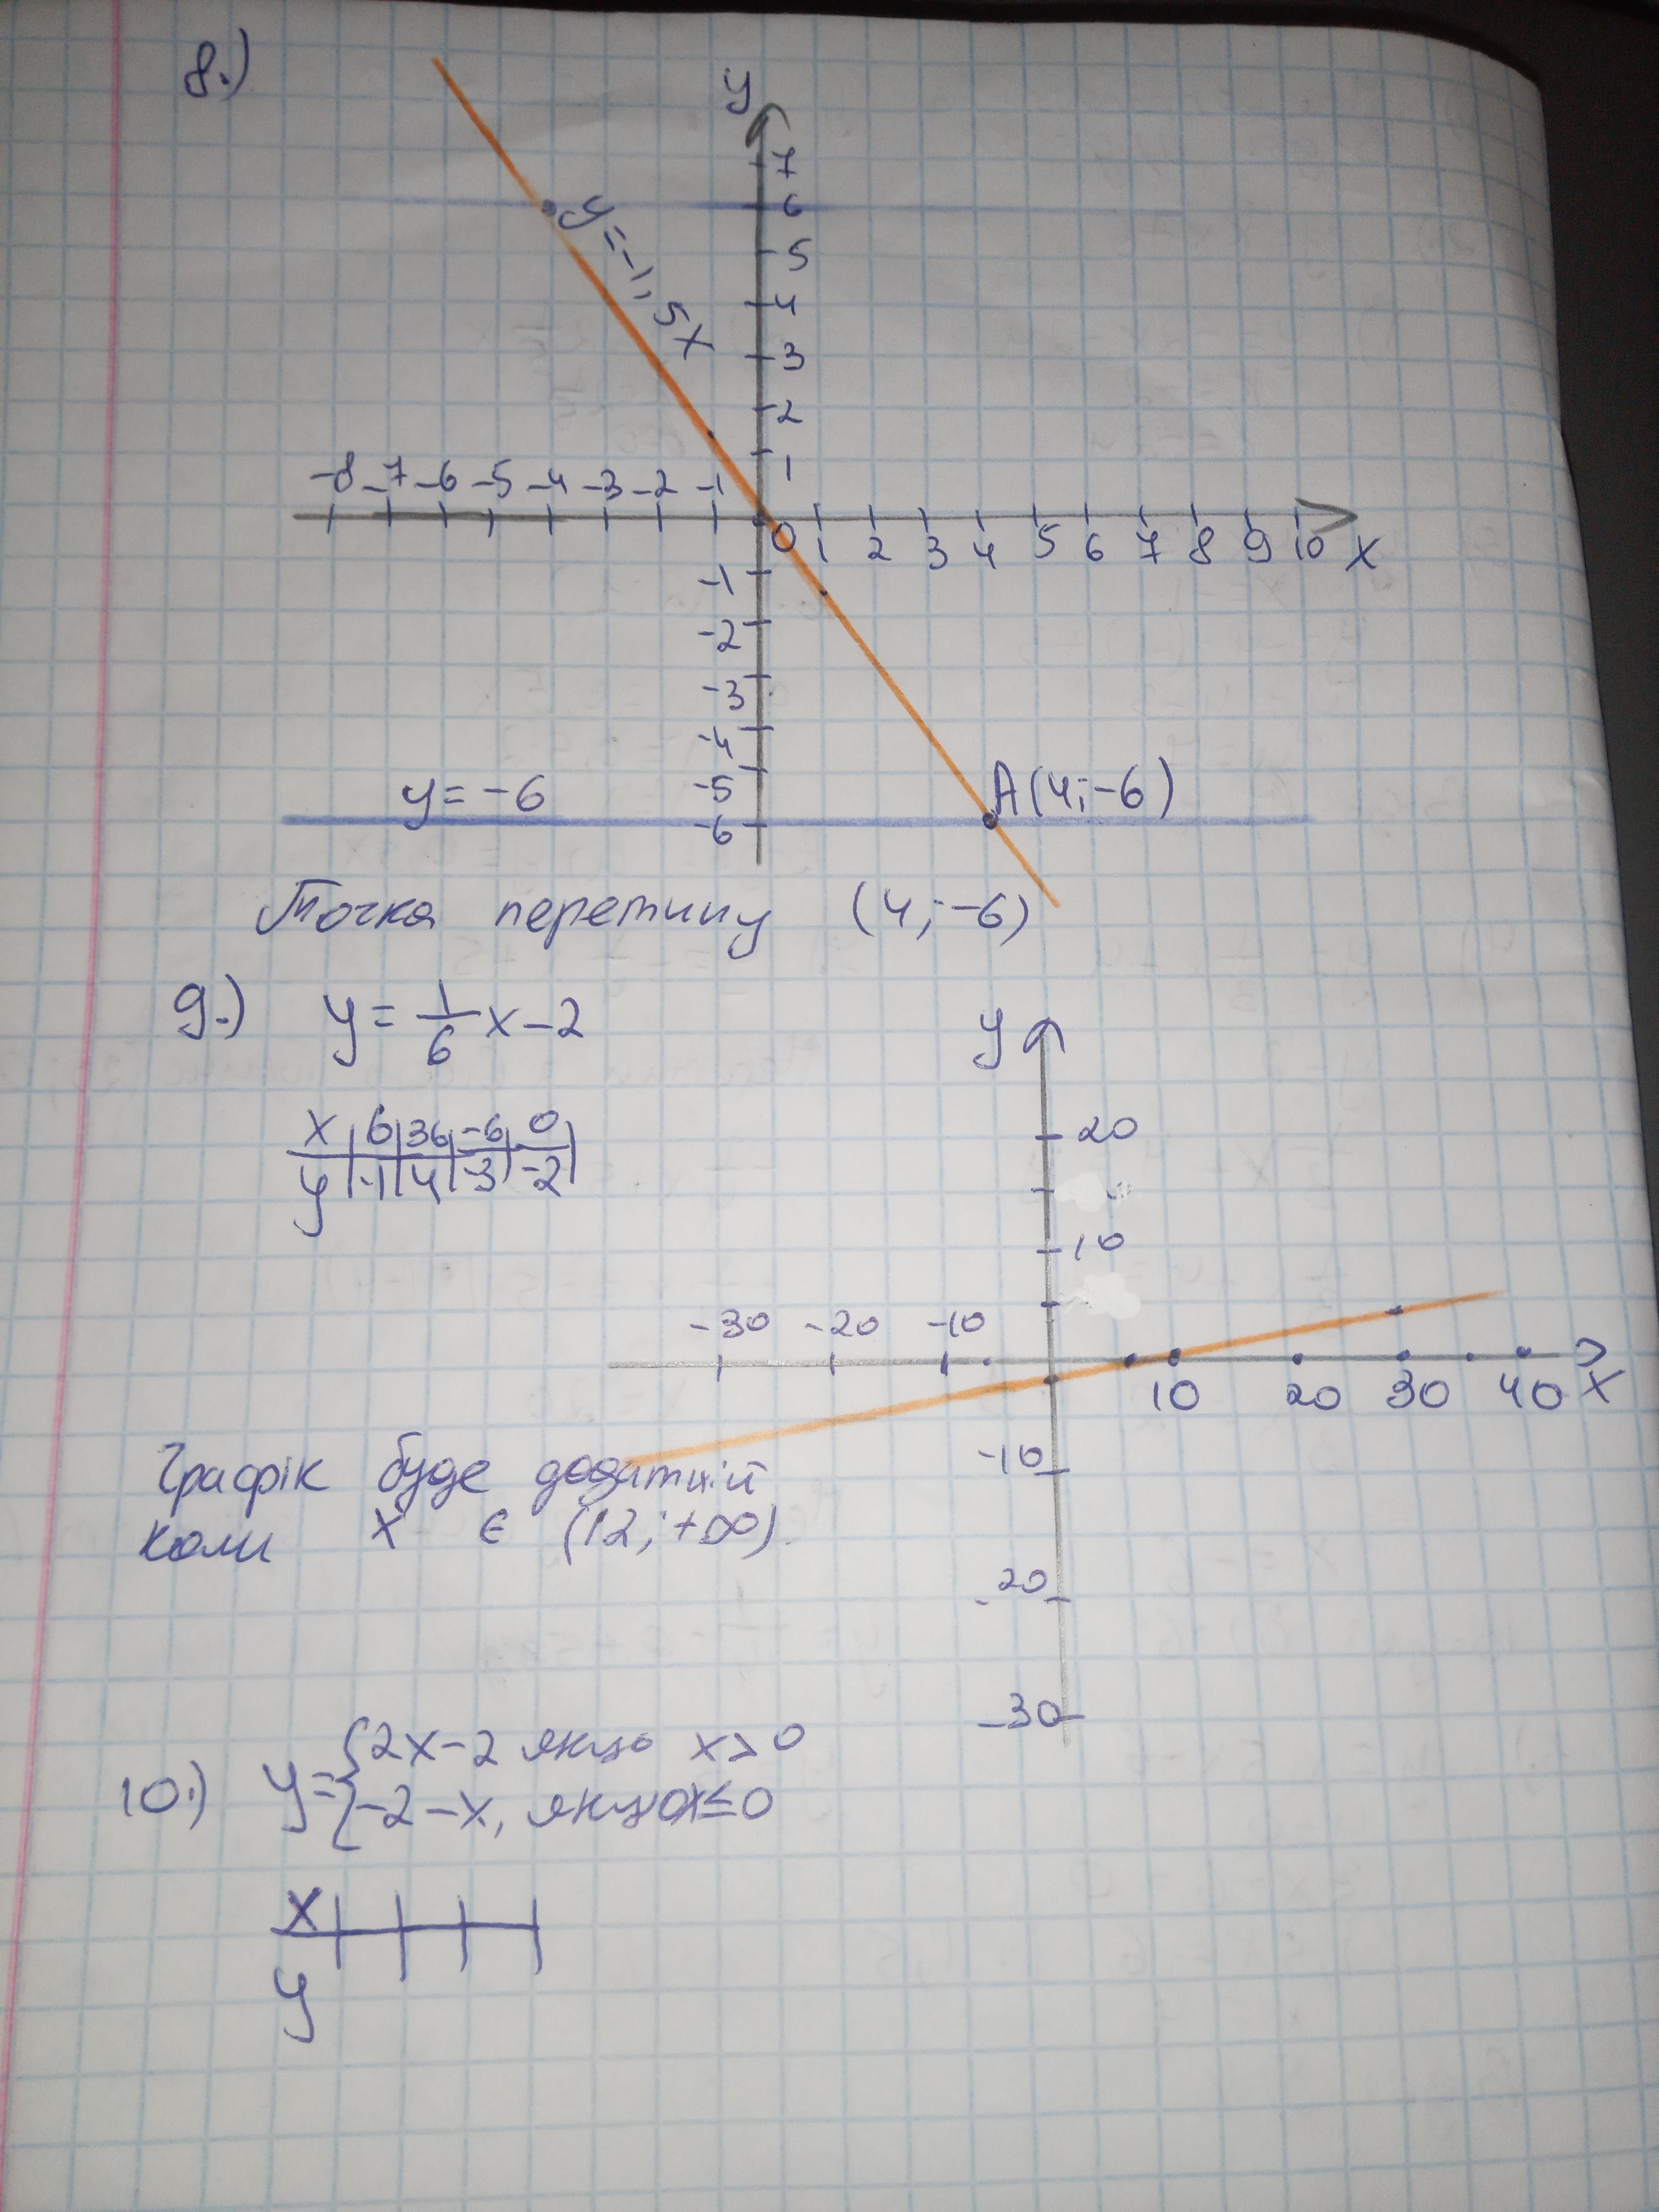 8.)
y
7
6
5
4
3
2
1
y=-1,5x
-8 -7 -6 -5 -4 -3 -2 -1
0 1 2 3 4 5 6 7 8 9 10 x
-1
-2
-3
-4
-5
-6
y=-6
A(4;-6)
Точка перетину (4;-6)
9.) y = 1/6 x - 2
x | 6 | 36 | -6 | 0
y | -1 | 4 | -3 | -2
y
20
10
-30 -20 -10
10 20 30 40 x
-10
-20
-30
Графік буде додатній
коли x ∈ (12;+∞).
10.) y= { 2x-2 якщо x>0
-2-x, якщо x≤0
x
y